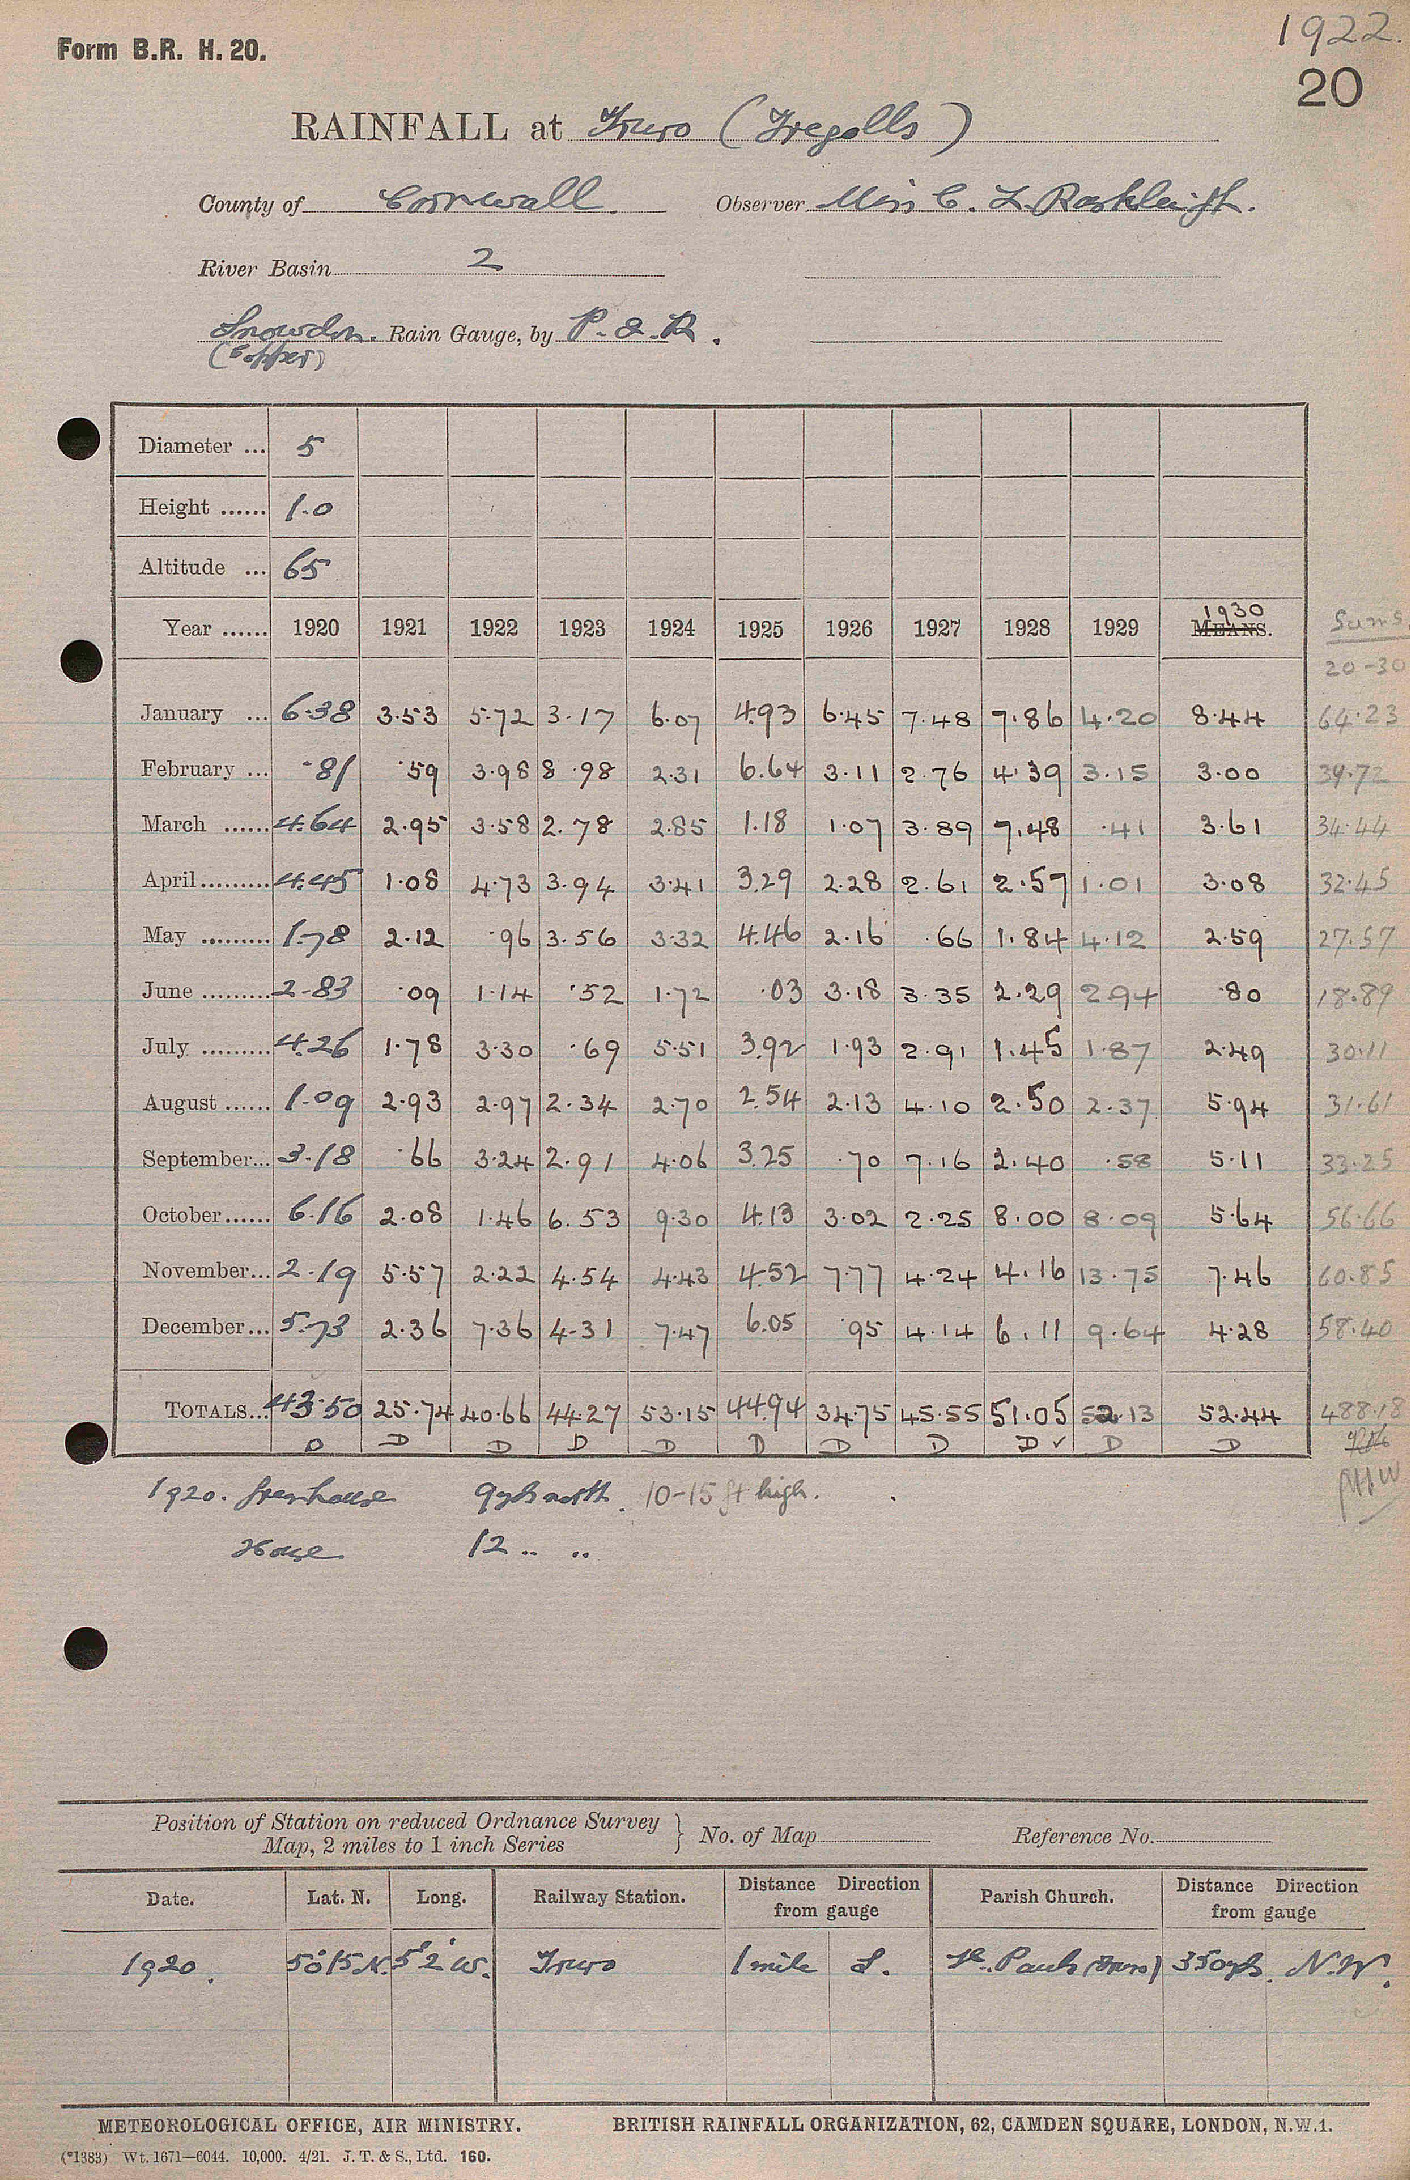 1922.
Form B.R. H. 20.
20
RAINFALL at Truro (Tregolls)
County of Cornwall Observer Miss C. L. Rashleigh.
River Basin 2
Snowdon. Rain Gauge, by P. & R.
(Copper)
Diameter ... 5
Height ...... 1.0
Altitude ... 65
Year ...... 1920 1921 1922 1923 1924 1925 1926 1927 1928 1929 1930 MEANS. Sums.
20-30
January ... 6.38 3.53 5.72 3.17 6.07 4.93 6.45 7.48 7.86 4.20 8.44 64.23
February ... .81 .59 3.98 8.98 2.31 6.64 3.11 2.76 4.39 3.15 3.00 39.72
March ...... 4.64 2.95 3.58 2.78 2.85 1.18 1.07 3.89 7.48 .41 3.61 34.44
April ......... 4.45 1.08 4.73 3.94 3.41 3.29 2.28 2.61 2.57 1.01 3.08 32.45
May ......... 1.78 2.12 .96 3.56 3.32 4.46 2.16 .66 1.84 4.12 2.59 27.57
June ......... 2.83 .09 1.14 .52 1.72 .03 3.18 3.35 2.29 2.94 .80 18.89
July ......... 4.26 1.78 3.30 .69 5.51 3.92 1.93 2.91 1.45 1.87 2.49 30.11
August ...... 1.09 2.93 2.97 2.34 2.70 2.54 2.13 4.10 2.50 2.37 5.94 31.61
September... 3.18 .66 3.24 2.91 4.06 3.25 .70 7.16 2.40 .58 5.11 33.25
October...... 6.16 2.08 1.46 6.53 9.30 4.13 3.02 2.25 8.00 8.09 5.64 56.66
November... 2.19 5.57 2.22 4.54 4.43 4.52 7.77 4.24 4.16 13.75 7.46 60.85
December... 5.73 2.36 7.36 4.31 7.47 6.05 .95 4.14 6.11 9.64 4.28 58.40
TOTALS... 43.50 25.74 40.66 44.27 53.15 44.94 34.75 45.55 51.05 52.13 52.44 488.18
D D D D D D D D D ✓ D D
1920. Greenhouse 9 yds north. 10-15 ft high.
House 12 .. ..
Position of Station on reduced Ordnance Survey
Map, 2 miles to 1 inch Series } No. of Map Reference No.
Date. Lat. N. Long. Railway Station. Distance Direction from gauge Parish Church. Distance Direction from gauge
1920. 50°15' N. 5°2' W. Truro 1 mile S. St. Pauls (Truro) 350 yds. N.W.
METEOROLOGICAL OFFICE, AIR MINISTRY. BRITISH RAINFALL ORGANIZATION, 62, CAMDEN SQUARE, LONDON, N.W.1.
(*1383) Wt. 1671—6044. 10,000. 4/21. J. T. & S., Ltd. 160.